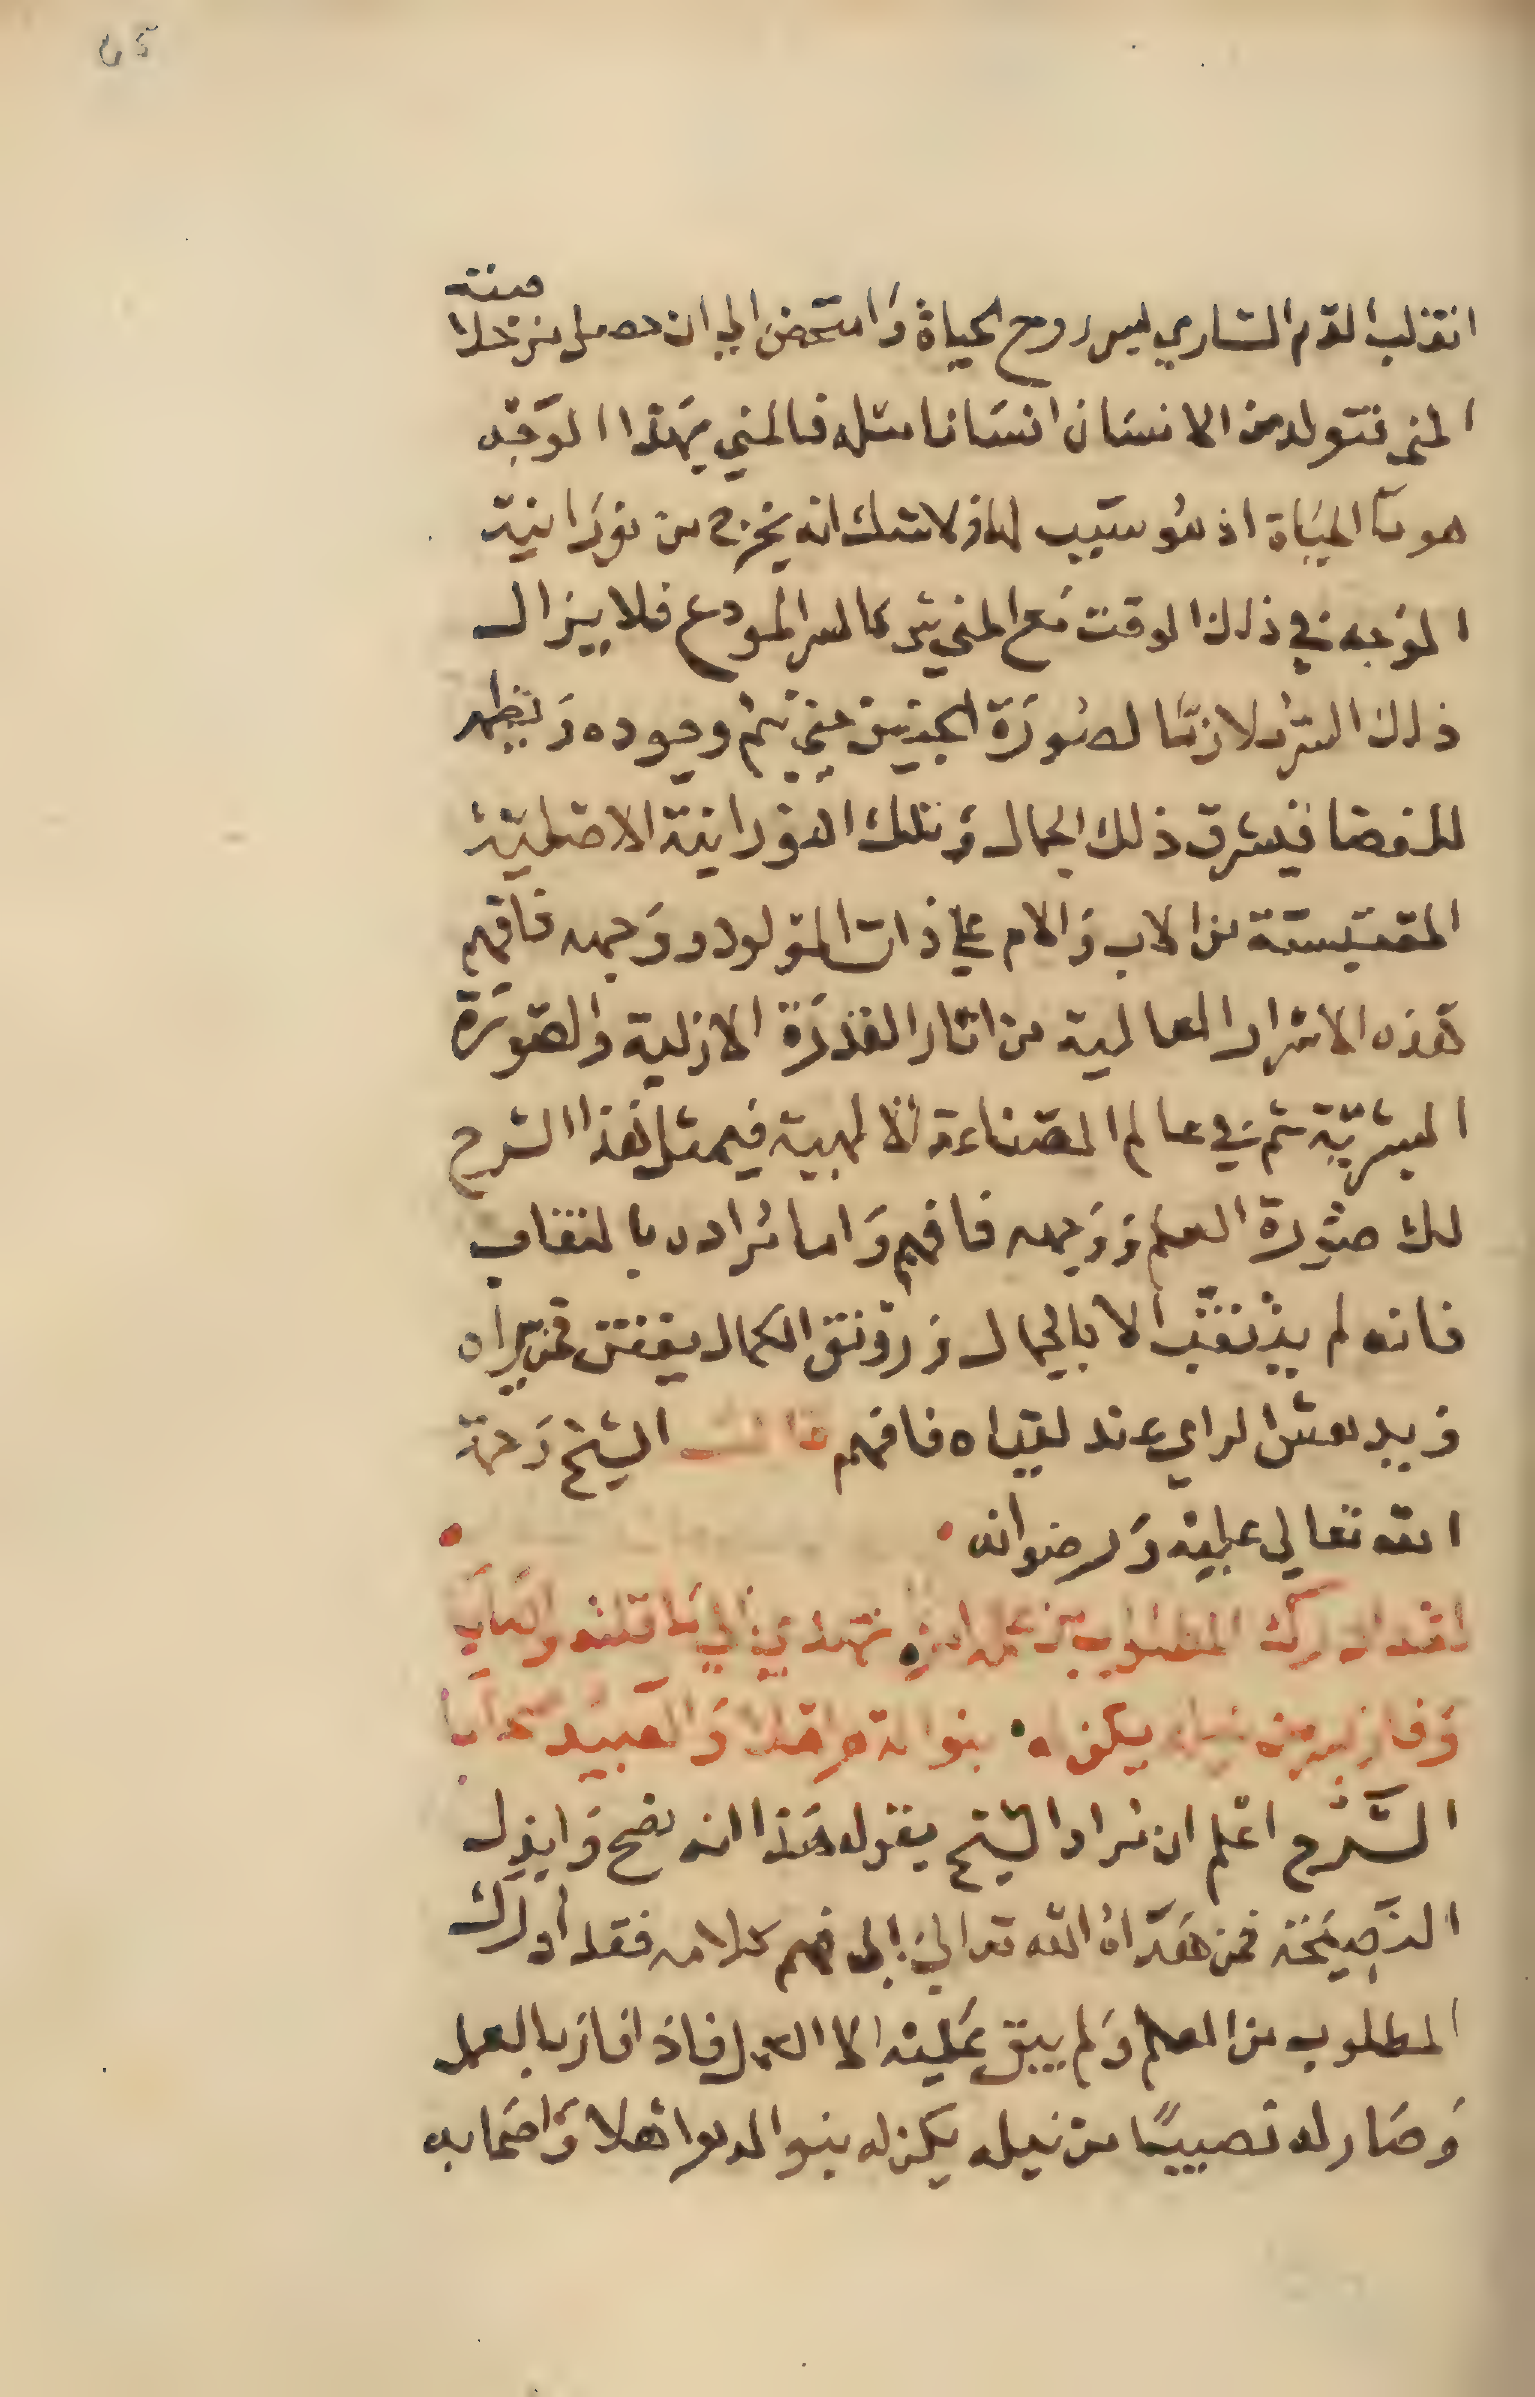 65
انقلب الدم الساري ليس روح الحياة وامتحض الي ان حصل من خلاصته
المني فتولد من الانسان انسانا مثله فالمني بهذا الوجه
هو ماً الحياة اذ هو سبب لها ولا شك انه يخرج من نورانية
الوجه في ذلك الوقت مع المني شي كالسر المودع فلا يزال
ذلك السر ملازمًا لصورة الجنين حتي يتم وجوده ويظهر
للفضا فيشرق ذلك الجمال وتلك النورانية الاصلية
المقتبسة من الاب والام علي ذات المولود ووجهه فافهم
هذه الاسرار العالية من اثار القدرة الازلية والصورة
البشرية ثم في عالم الصناعة الالهية فيمثل هذا الشرح
لك صورة العلم ووجهه فافهم واما مراده بالنقاب
فانه لم يتنقب الا بالجمال ورونق الكمال يفتتن من يراه
ويدهش الراي عند لقياه فافهم قال الشيخ رحمة
الله تعالي عليه ورضوانه
لقد ادرك المطلوب من
وفاز يكن له بنواله اهلا والعبيد
الشرح اعلم ان مراد الشيخ بقوله هذا انه نصح وابذل
النصيحة فمن هداه الله تعالي الي فهم كلامه فقد ادرك
المطلوب من العلم ولم يبق عليه الا العمل فاذا فاز بالعمل
وصار له نصيبًا من نيله يكن له بنو الدهر اهلا واصحابه